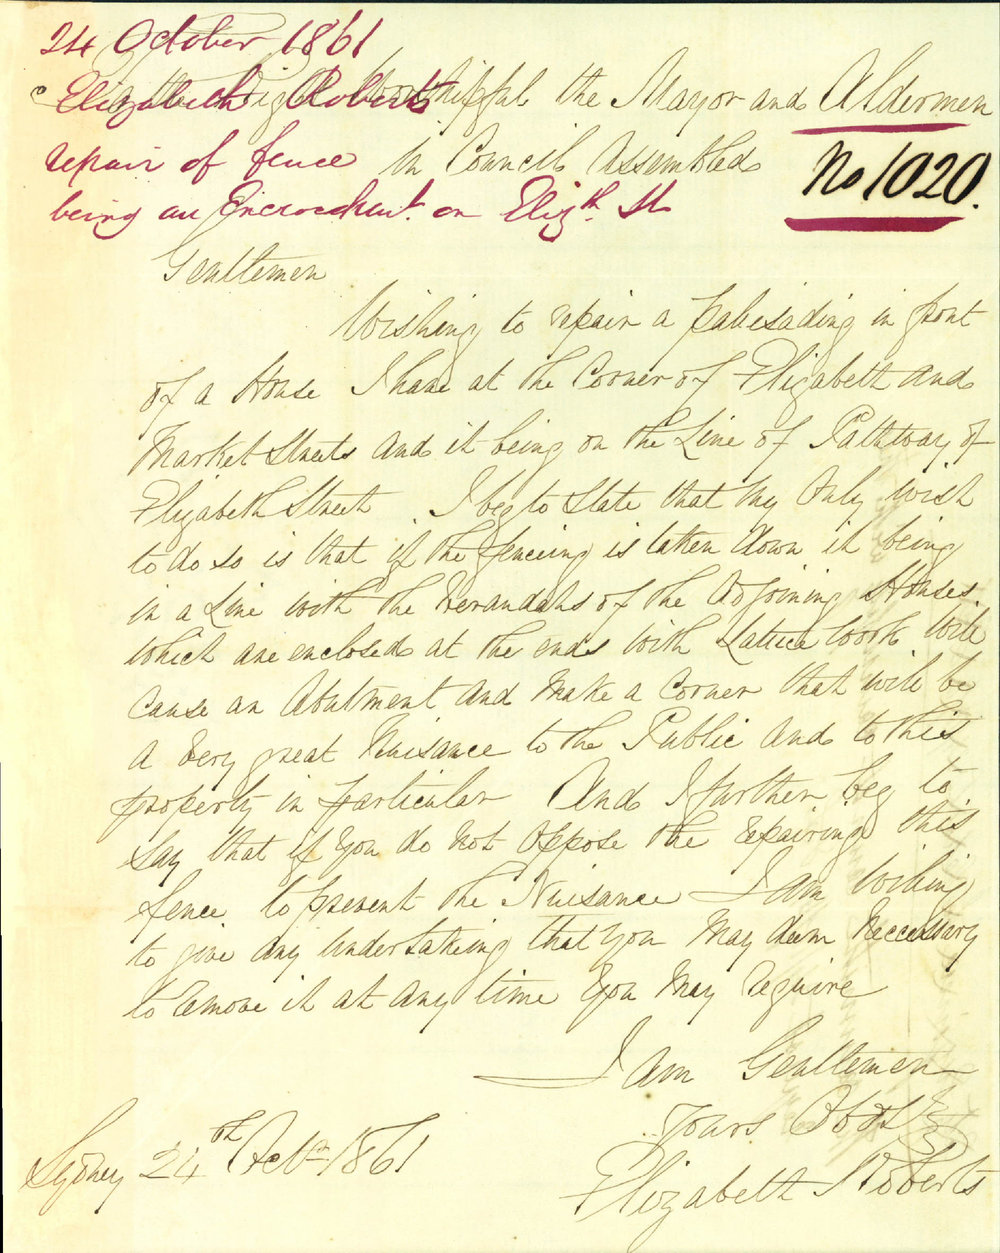 24 October 1861
Elizabeth Roberts
repair of fence
being an Encroachmt. on Elizth. St
No 1020.
To the Right Worshipful the Mayor and Aldermen
in Council Assembled
Gentlemen
Wishing to repair a palisading in front
of a House I have at the Corner of Elizabeth and
Market Streets and it being on the Line of Pathway of
Elizabeth Street I beg to State that my Only wish
to do so is that if the fenceing is taken down it being
in a Line with the Verandahs of the Adjoining Houses
which are enclosed at the ends with Lattice work will
cause an Abutment and make a Corner that will be
a Very great Nuisance to the Public and to this
property in particular And I further beg to
Say that if you do not oppose the repairing this
fence to prevent the Nuisance I am Willing
to give any undertaking that you may deem Necessary
to remove it at any time you may require
I am Gentlemen
Yours Obdt
Elizabeth Roberts
Sydney 24th Octr 1861